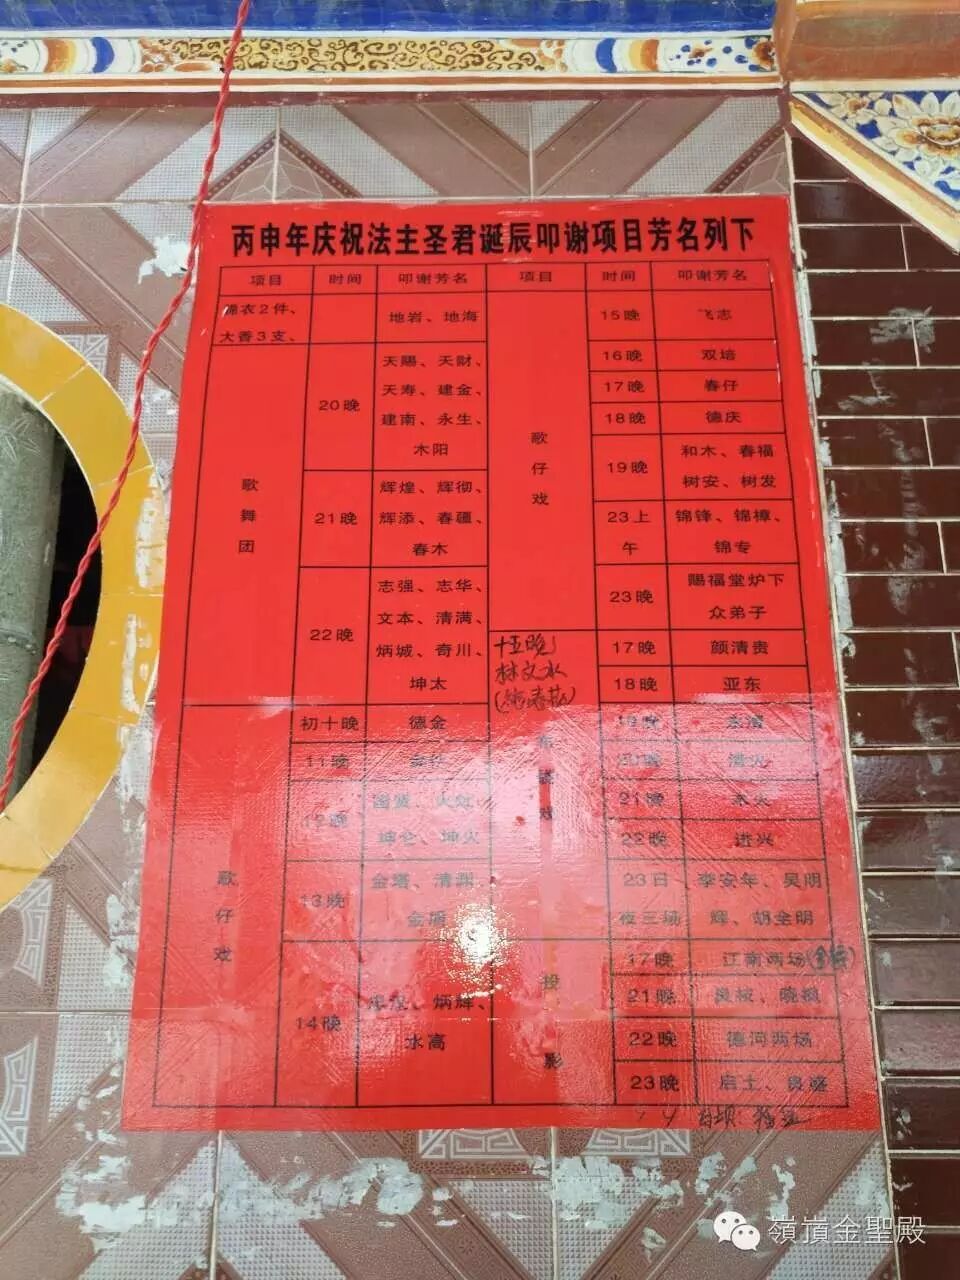 丙申年庆祝法主圣君诞辰叩谢项目芳名列下
项目 时间 叩谢芳名 项目 时间 叩谢芳名
锦衣2件、
大香3支、
地岩、地海
歌舞团
20晚
天赐、天财、
天寿、建金、
建南、永生、
木阳
21晚
辉煌、辉彻、
辉添、春疆、
春木
22晚
志强、志华、
文本、清满、
炳城、奇川、
坤太
歌仔戏
初十晚 德金
11晚
12晚
坤仑、坤火
13晚
金塔、清渊、
14晚
炳辉、
水高
歌仔戏
15晚 飞志
16晚 双培
17晚 春仔
18晚 德庆
19晚
和木、春福
树安、树发
23上午
锦锋、锦樟、
锦专
23晚
赐福堂炉下
众弟子
十五晚
林文水
17晚 颜清贵
18晚 亚东
19晚
20晚
21晚
22晚 进兴
23日
夜三场
李安年、吴明
辉、胡全明
投影
17晚 江南两场
21晚
22晚 德河两场
23晚
嶺頂金聖殿